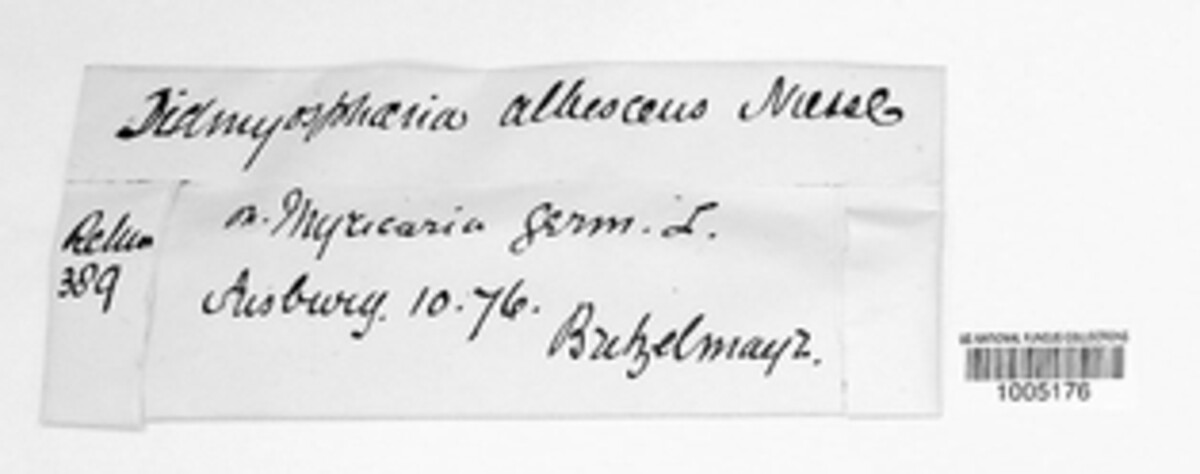 Didmyosphaeria albescens Niessl
n. Myricaria germ. L.
Rehm
389
Ausburg. 10.76.
Britzelmayr.
US NATIONAL FUNGUS COLLECTIONS
1005176